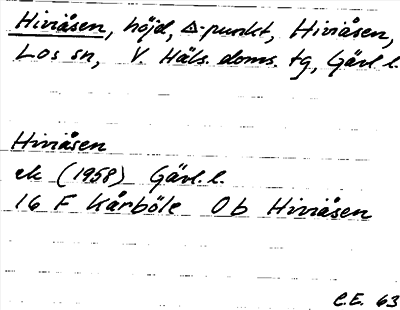 Hiviåsen, höjd, △-punkt, Hiviåsen,
Los sn, V. Häls. doms. tg, Gävl. l.
Hiviåsen
ek (1958) Gävl. l.
16 F Kårböle 0 b Hiviåsen
C.E. 63